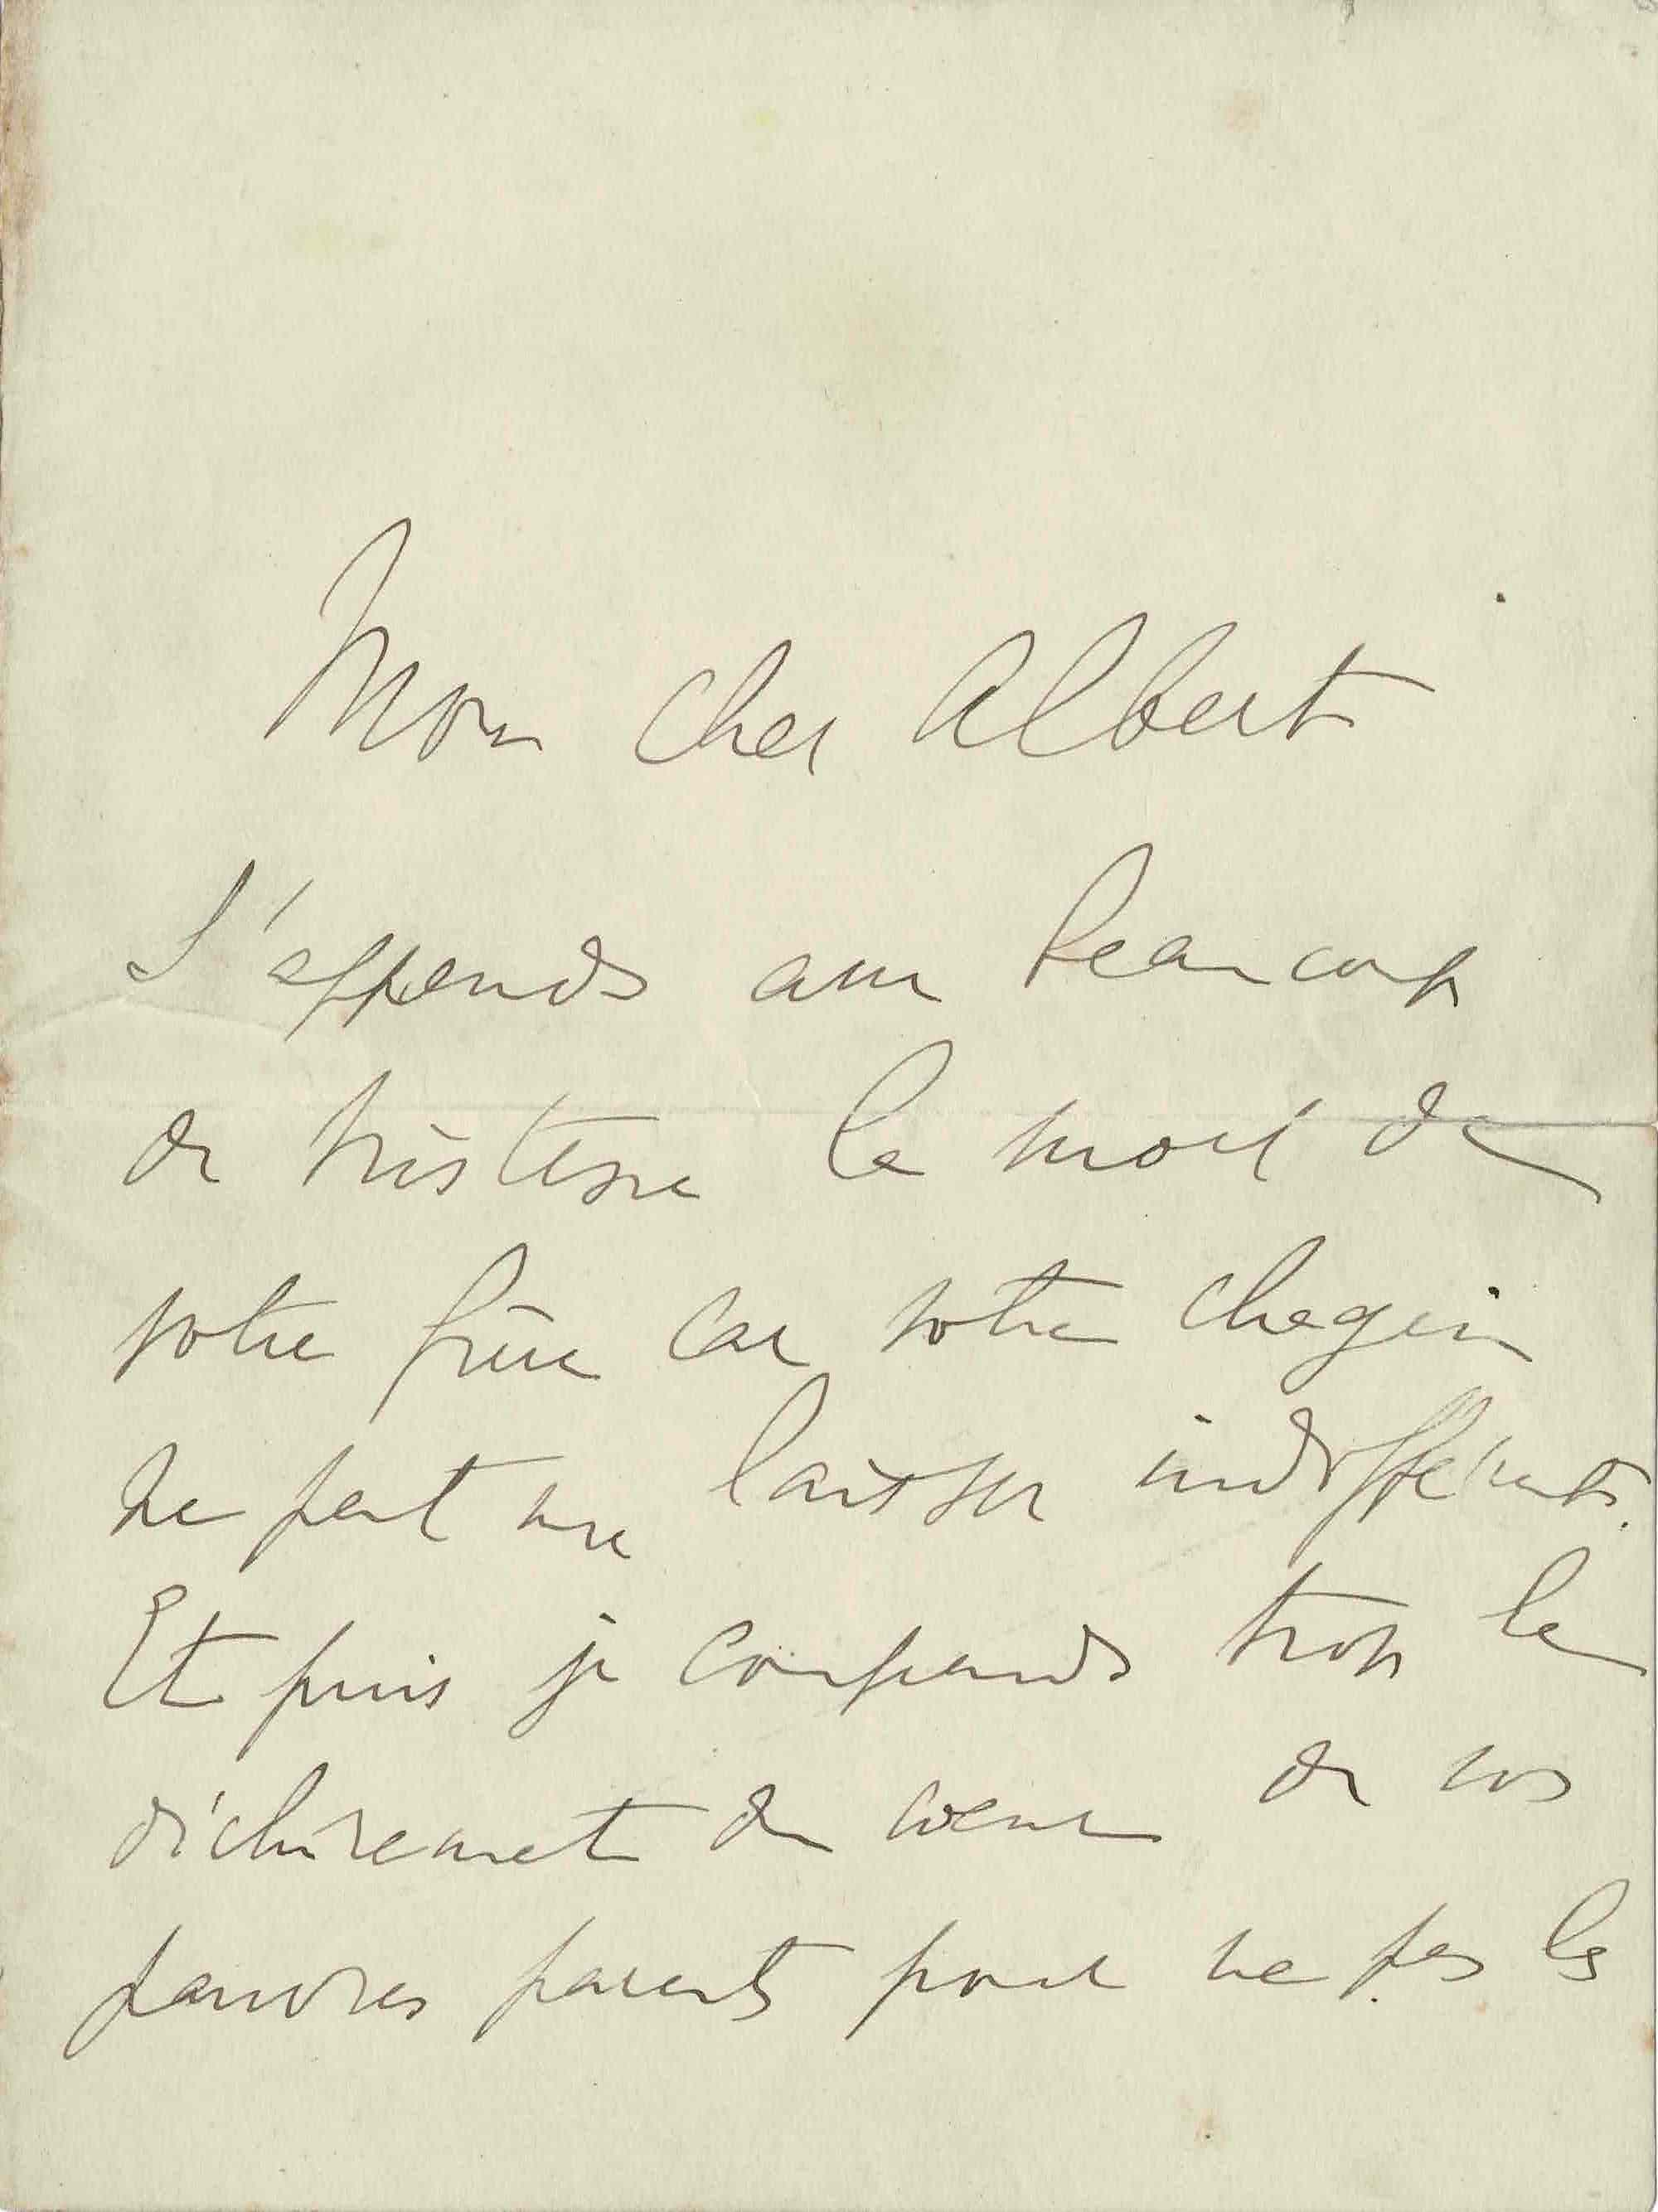 Mon cher Albert
J'apprends avec beaucoup
de tristesse la mort de
votre frère car votre chagrin
ne peut me laisser indifférent.
Et puis je comprends trop le
déchirement de coeur de vos
pauvres parents pour ne pas les